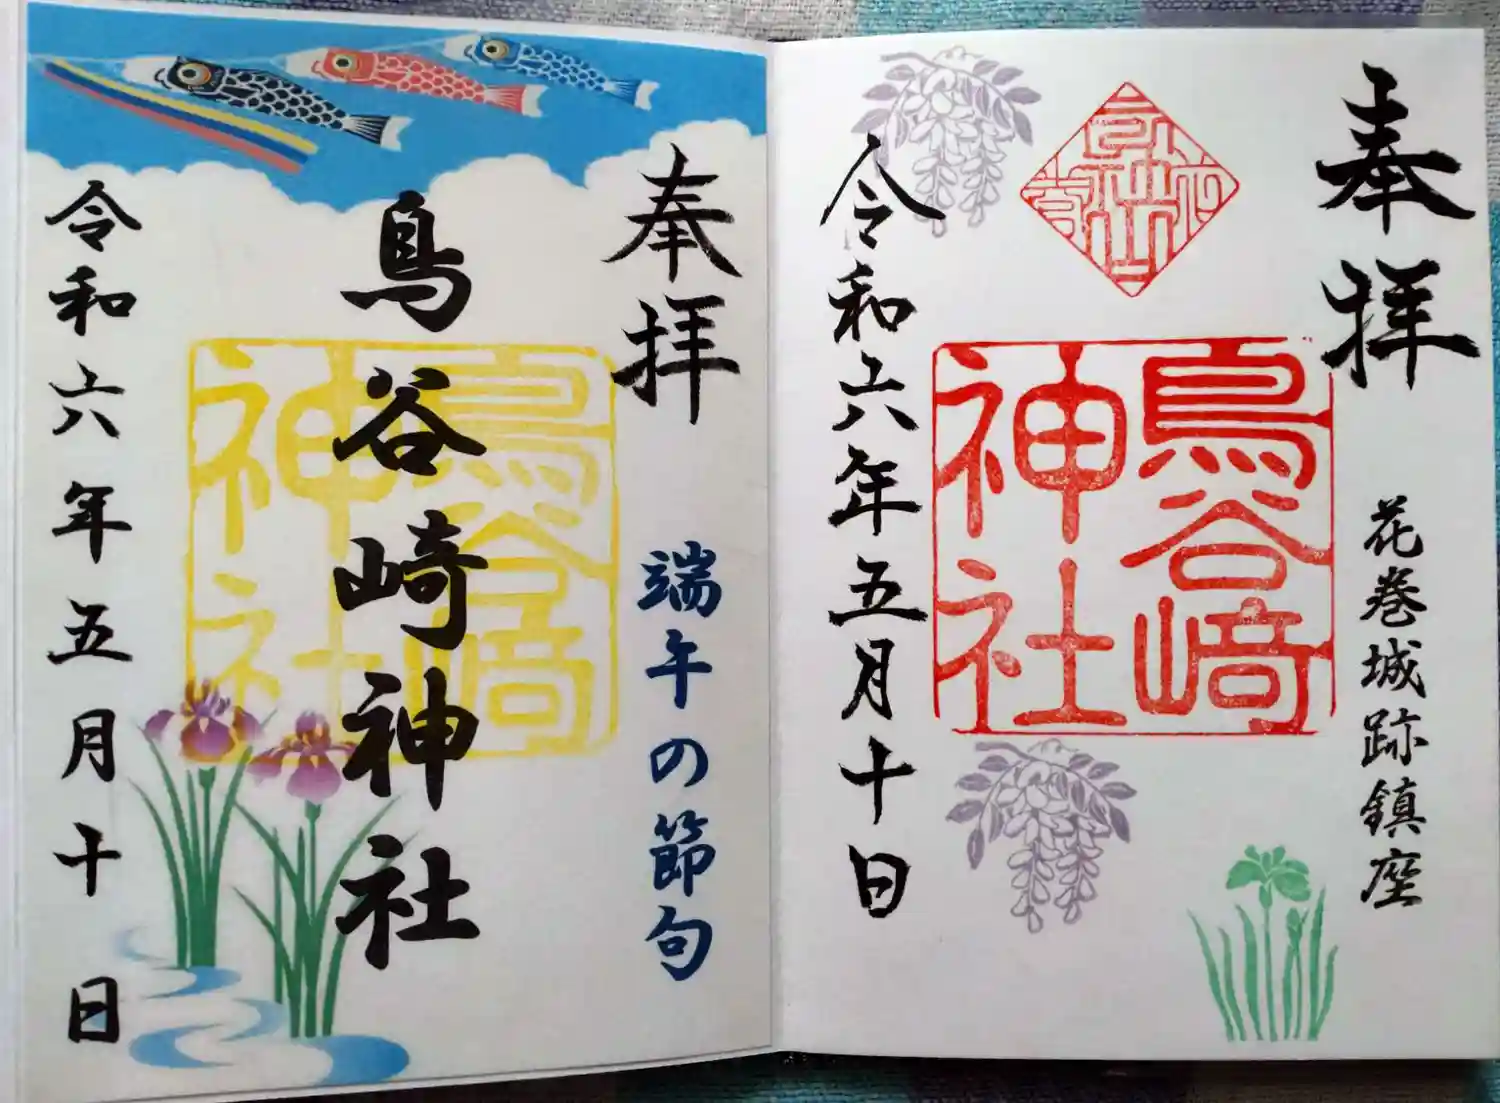 奉拝
花巻城跡鎮座
鳥谷崎
神社
令和六年五月十日
奉拝
端午の節句
鳥谷崎神社
鳥谷崎
神社
令和六年五月十日